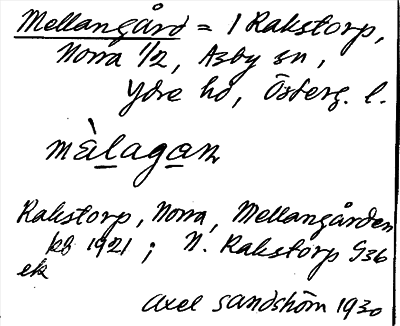 Mellangård = 1 Rakstorp,
Norra 1/2, Asby sn,
Ydre hd, Österg. l.
mèlagaɲ
Rakstorp, Norra, Mellangården
kb 1921; N. Rakstorp G36
ek
Axel Sandström 1930